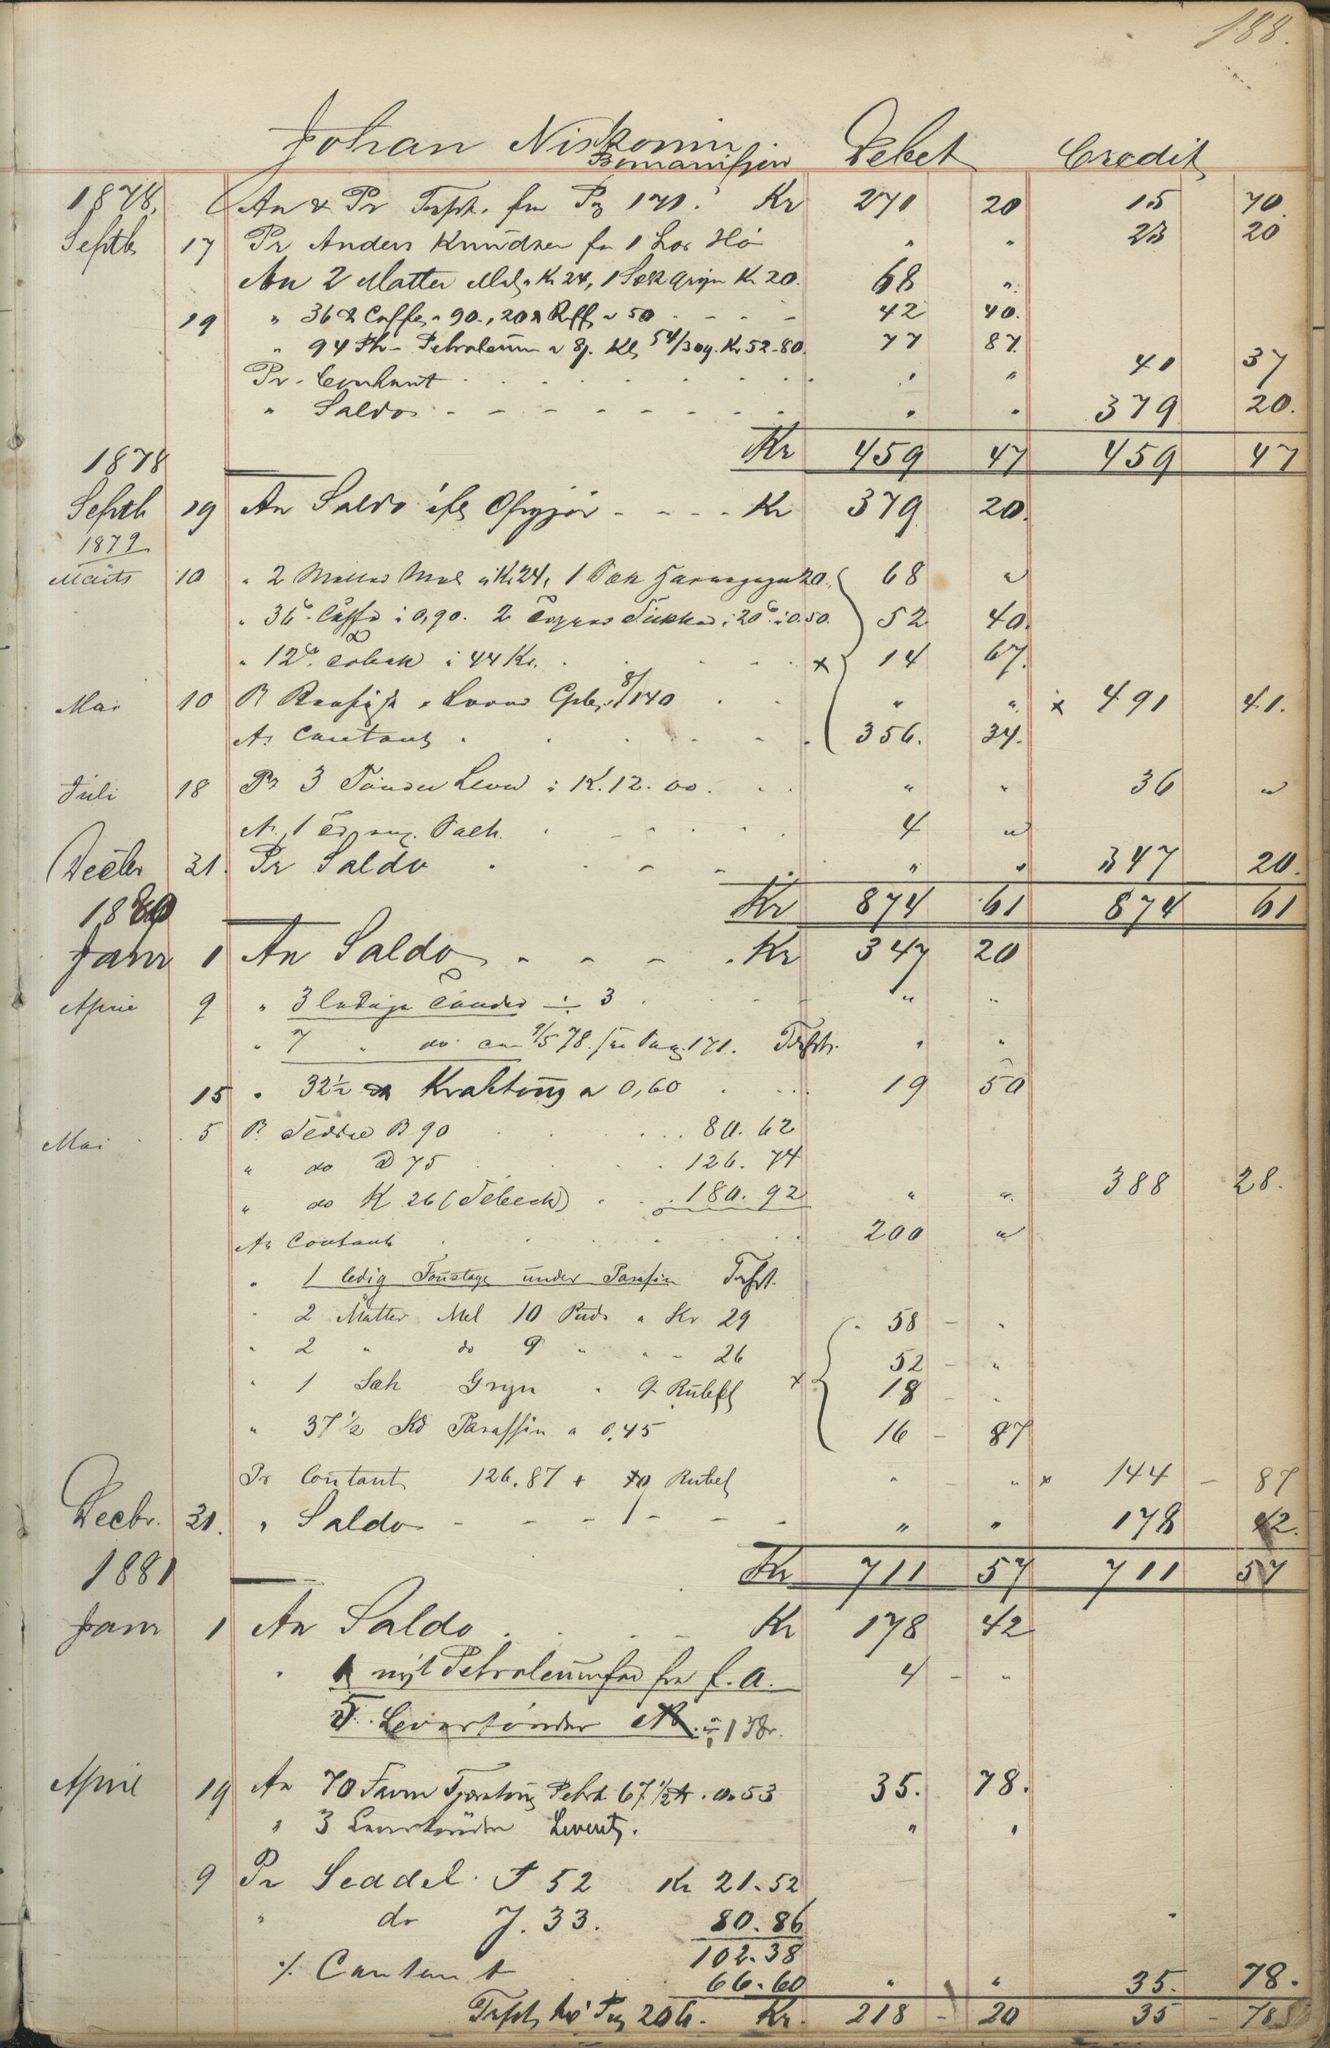 188.
Johan Niskonin Debet Credit
Bomanifjor
1878. An & Pr Trfst. fra Pg 171. Kr 271 20 15 70
Septb 17 Pr Anders Knudsen for 1 Las Hö " " 23 20
An 2 Matter Mel a Kr 24, 1 Sæk Gryn Kr 20. 68 "
19 " 36 ℔ Caffe a 90., 20 ℔ Raff a 50 42 40.
" 94 ℔ Petroleum a 8j. Kr 52-80. 77 87
Pr. Contant " " 40 37
" Saldo " " 379 20.
Kr 459 47 459 47
1878
Septb 19 An Saldo ifg Opgjör Kr 379 20.
1879
Marts 10 " 2 Matter Mel a Kr 24, 1 Sæk 20. 68 "
" 36 Caffe a 0,90. 2 Sukker 20 a 0.50. 52 40.
" 12 Tobak a 44 Kr. x 14 67.
Mai 10 Pr 8/140 " " x 491 41.
An Contant 356. 34.
Juli 18 Pr 3 Tönder Lever a K. 12.00. " " 36 "
An 1 Salt. 4 "
Decbr 31. Pr Saldo " " 347 20.
1880 Kr 874 61 874 61
Janr 1 An Saldo Kr 347 20
April 9 " 3 ledige Tönder ÷ 3 " "
" 7 " do 9/5 78. fra Pag. 171. Trfst. " "
15 " 32½ ℔ Kraktoug a 0,60 19 50
Mai 5 Pr. Seddel B 90 80. 62
" do D 75 126. 74
" do K 26 (Tebeck) 180. 92 " " 388 28.
An Contant 200 "
" 1 ledig Foustage under Parafin Trfst.
" 2 Matter Mel 10 Puds a Kr 29 58 - "
" 2 " do 9 " " - 26 52 - "
" 1 Sæk Gryn " 9 Rubel x 18 - "
" 37½ Parafin a 0,45 16 - 87
Pr Contant 126.87 + Rubel " " x 144 - 87
Decbr. 31. " Saldo " " 178 42.
1881 Kr 711 57 711 57
Janr 1 An Saldo Kr 178 42
" 1 nyt Petroleumfad fra f. a. 4 - "
5 Levertönder ÷ 1
April 19 An 70 Favn Petrl 67½ ℔ a 53 35. 78.
" 3 Levertönder Levert. " "
9 Pr Seddel. 52 Kr 21.52
" do J. 33. 80.86 "
102.38
% Cantant 66.60 " " 35. 78.
Trfst. til Pag 206. Kr. 218 - 20 35 - 78